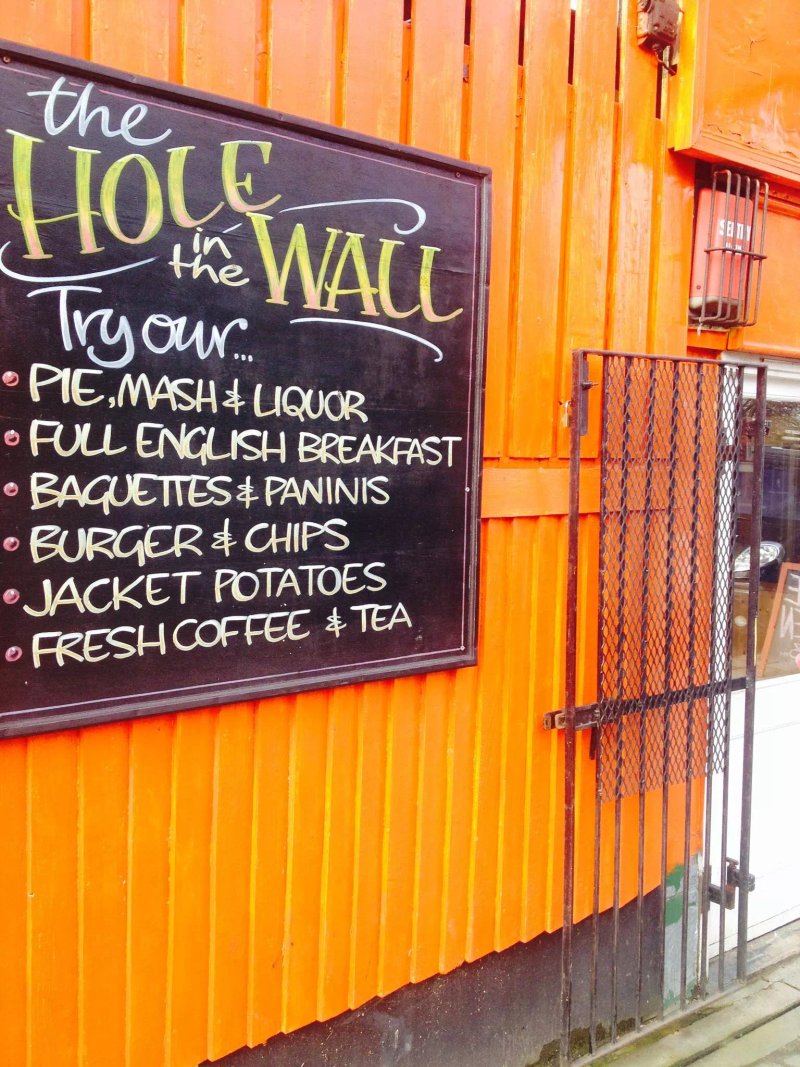 the
HOLE
in
the
WALL
Try our...
PIE, MASH & LIQUOR
FULL ENGLISH BREAKFAST
BAGUETTES & PANINIS
BURGER & CHIPS
JACKET POTATOES
FRESH COFFEE & TEA